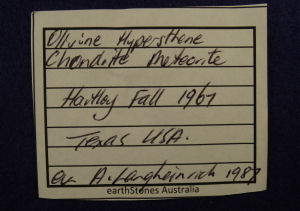 Olivine Hypersthene
Chondrite Meteorite
Hartley Fall 1967
Texas USA.
ex A. Langheinrich 1987
earthStones Australia